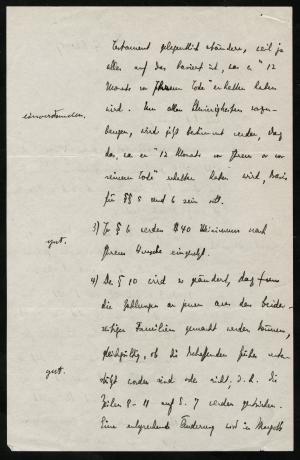 Testament gelegentlich abändern, weil ja
alles auf das basiert ist, was er "12
Monate vor Ihrem Tode" erhalten haben
wird. Um allen Schwierigkeiten vorzu-
einverstanden.
beugen, wird jetzt bestimmt werden, dass
das, was er "12 Monate vor Ihrem or vor
seinem Tode" erhalten haben wird, Basis
für §§ 5 und 6 sein soll.
3) In § 6 werden $40 Minimum nach
gut.
Ihrem Wunsche eingesetzt.
4) Der § 10 wird so geändert, dass
die Zahlungen an jenen aus den beider-
seitigen Familien gemacht werden können,
gleichgültig, ob die Betreffenden früher unter-
gut.
stützt worden sind oder nicht, d.h. die
Zeilen 9 - 11 auf S. 7 werden gestrichen.
Eine entsprechende Änderung wird in